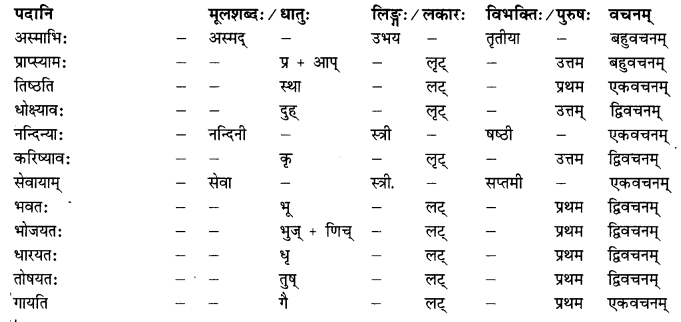 पदानि मूलशब्दः / धातुः लिङ्गः / लकारः विभक्तिः / पुरुषः वचनम्
अस्माभिः – अस्मद् – उभय – तृतीया – बहुवचनम्
प्राप्स्यामः – – प्र + आप् – लृट् – उत्तम बहुवचनम्
तिष्ठति – – स्था – लट् – प्रथम एकवचनम्
धोक्ष्यावः – – दुह् – लृट् – उत्तम् द्विवचनम्
नन्दिन्याः – नन्दिनी – स्त्री – षष्ठी – एकवचनम्
करिष्यावः – – कृ – लृट् – उत्तम द्विवचनम्
सेवायाम् – सेवा – स्त्री. – सप्तमी – एकवचनम्
भवतः – – भू – लट् – प्रथम द्विवचनम्
भोजयतः – – भुज् + णिच् – लट् – प्रथम द्विवचनम्
धारयतः – – धृ – लट् – प्रथम द्विवचनम्
तोषयतः – – तुष् – लट् – प्रथम द्विवचनम्
गायति – – गै – लट् – प्रथम एकवचनम्